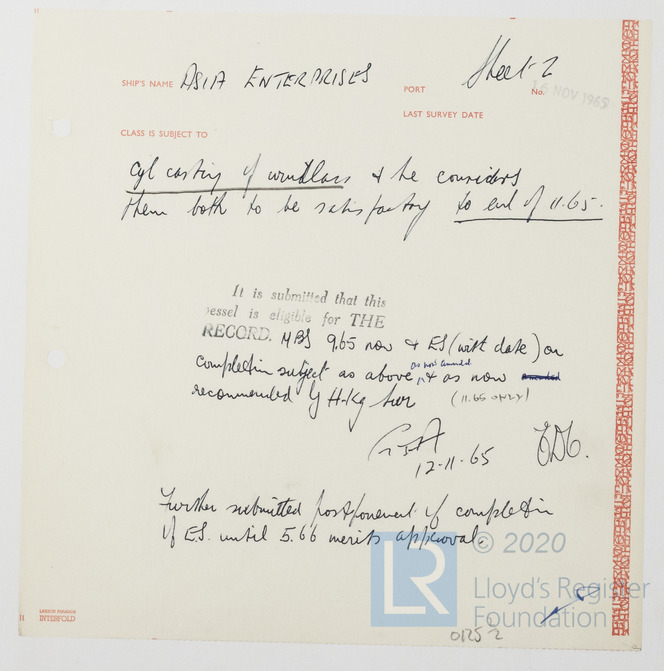 Sheet 2
SHIP'S NAME ASIA ENTERPRISES
PORT
No. 16 NOV 1965
LAST SURVEY DATE
CLASS IS SUBJECT TO
Cyl casting of windlass & he considers
them both to be satisfactory to end of 11.65.
It is submitted that this
vessel is eligible for THE
RECORD. MBS 9.65 now & ES (with date) on
completion subject as above, as now amended & as now amended
recommended by H-Kg Sur (11.65 ONLY)
12-11-65
Further submitted postponement of completion
of ES. until 5.66 merits approval.
© 2020
LR
Lloyd's Register
Foundation
LAMSON PARAGON
INTERFOLD
0125 2